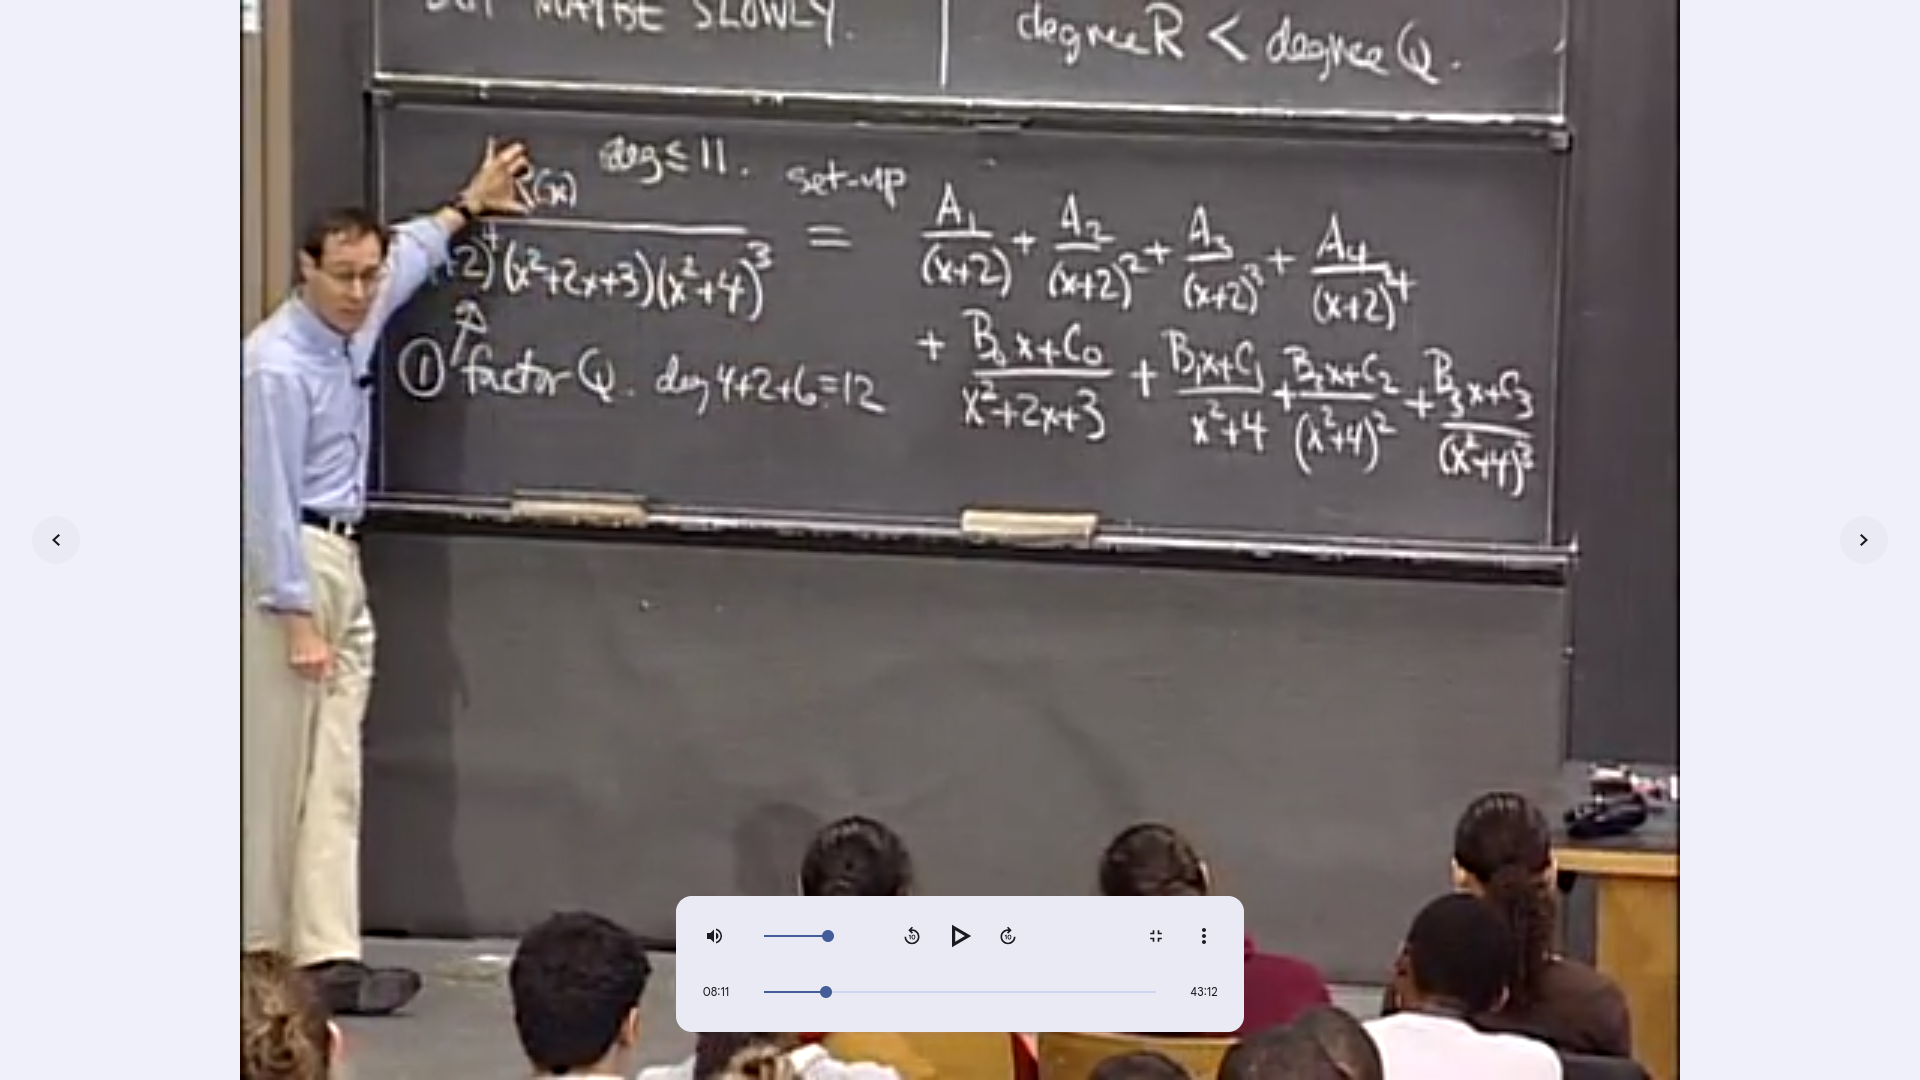 MAYBE SLOWLY.
degree R < degree Q.
deg ≤ 11.
set-up
R(x)
+2)⁴(x²+2x+3)(x²+4)³
=
A₁/(x+2) + A₂/(x+2)² + A₃/(x+2)³ + A₄/(x+2)⁴
+ B₀x+C₀/x²+2x+3 + B₁x+C₁/x²+4 + B₂x+C₂/(x²+4)² + B₃x+C₃/(x²+4)³
① factor Q. deg 4+2+6=12
10
10
08:11
43:12